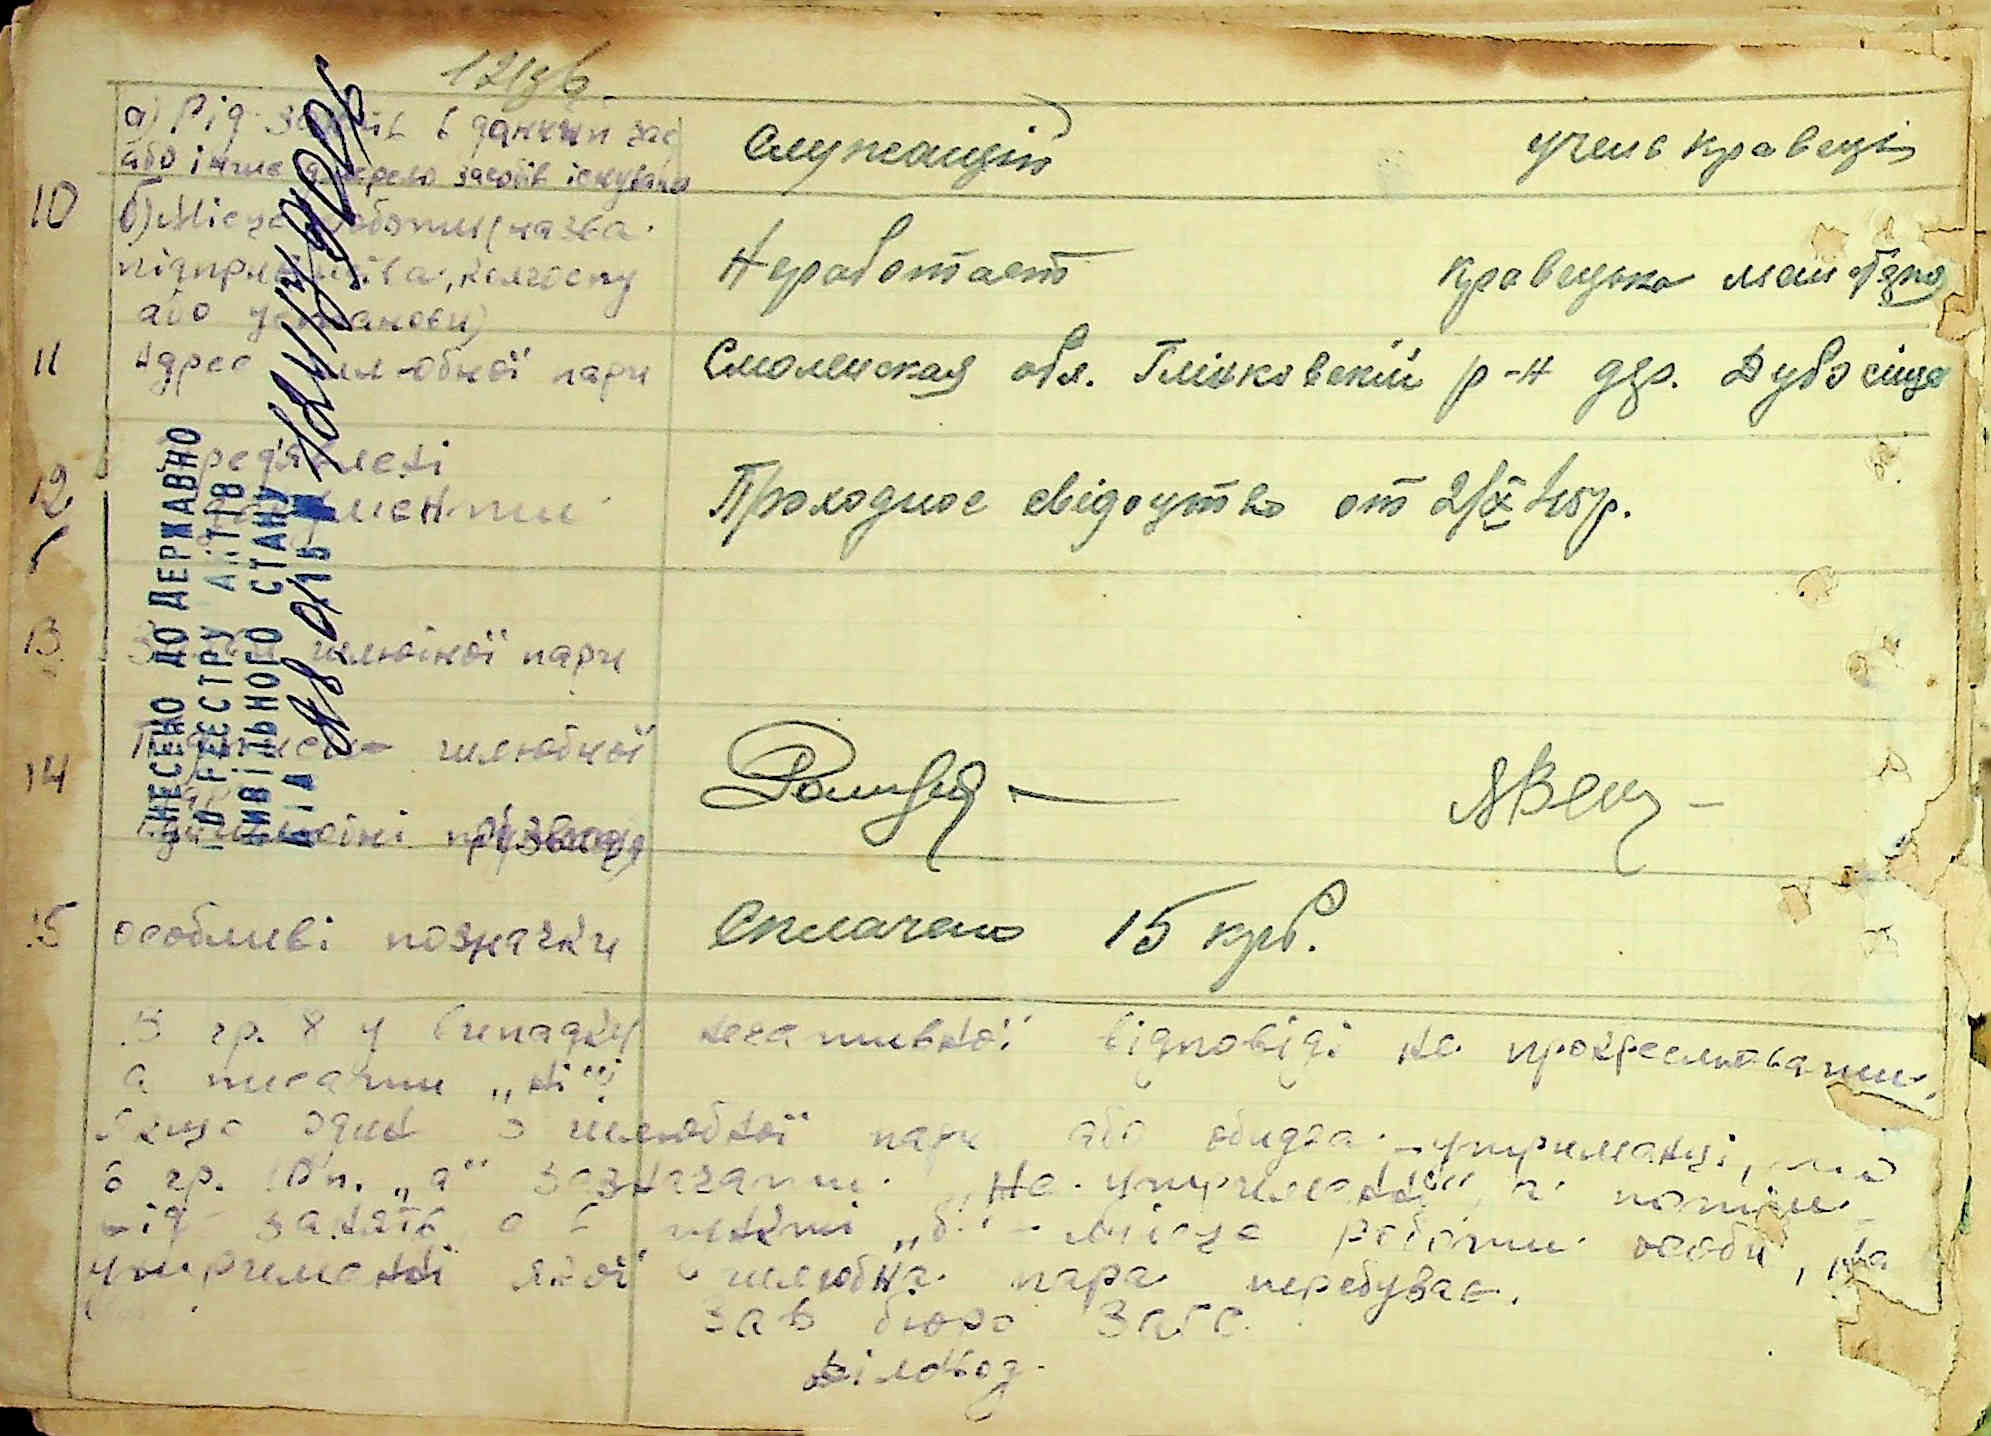 121зв.
а) Рід занять в даний час
або інше джерело засобів існування
Служащий
учень кравець
10
б) Місце роботи (назва
підприємства, колгоспу
або установи)
Неработает
Кравецька май
11
Адрес шлюбної пари
Смоленская обл. Глінковский р-н дер.
12
Пред'явлені
документи
Проходное свідоцтво от 2/X 45р.
13
шлюбної пари
14
Підписи шлюбної
пари
15
особливі позначки
Сплачено 15 крб.
В гр. 8 у випадку негативної відповіді не прокреслювати,
а писати „ні“
Якщо один з шлюбної пари або обидва утриманці, то в
в гр. 10 п. „а“ зазначати „На утриманні“, а потім
рід занять, а в пункті „б“ – місце роботи особи, на
утриманні якої шлюбна пара перебуває.
Зав бюро Загс
ВНЕСЕНО ДО ДЕРЖАВНО
ГО РЕЄСТРУ АКТІВ
ЦИВІЛЬНОГО СТАНУ
ДІЛ